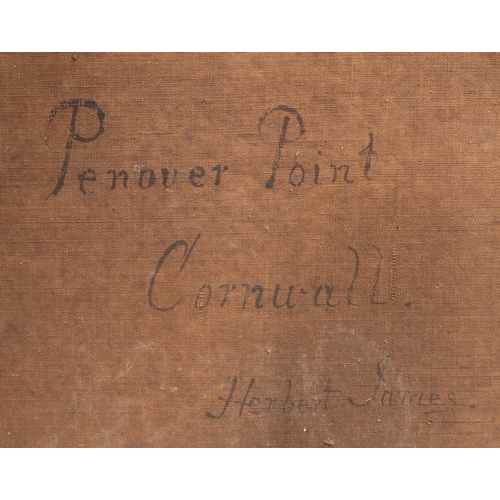 Penover Point
Cornwall.
Herbert James.